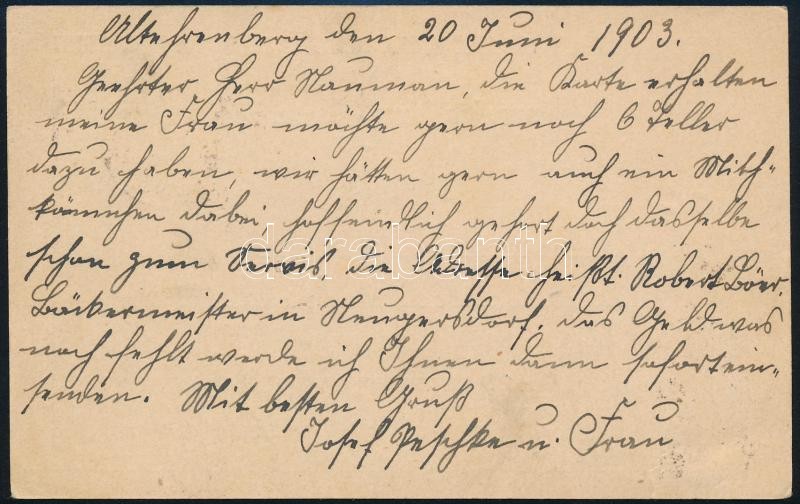 Altehrenberg den 20 Juni 1903.
Geehrter Herr Nauman, die Karte erhalten
meine Frau möchte gern noch 6 Teller
dazu haben, wir hätten gern auch ein Milch-
kännchen dabei, hoffendlich gehört doch dasselbe
schon zum Servis die Adresse heißt. Robert Böer.
Bäckermeister in Neugersdorf. das Geld was
noch fehlt werde ich Ihnen dann sofort ein-
senden. Mit besten Gruß
Josef Peschke u. Frau
darabanth.com